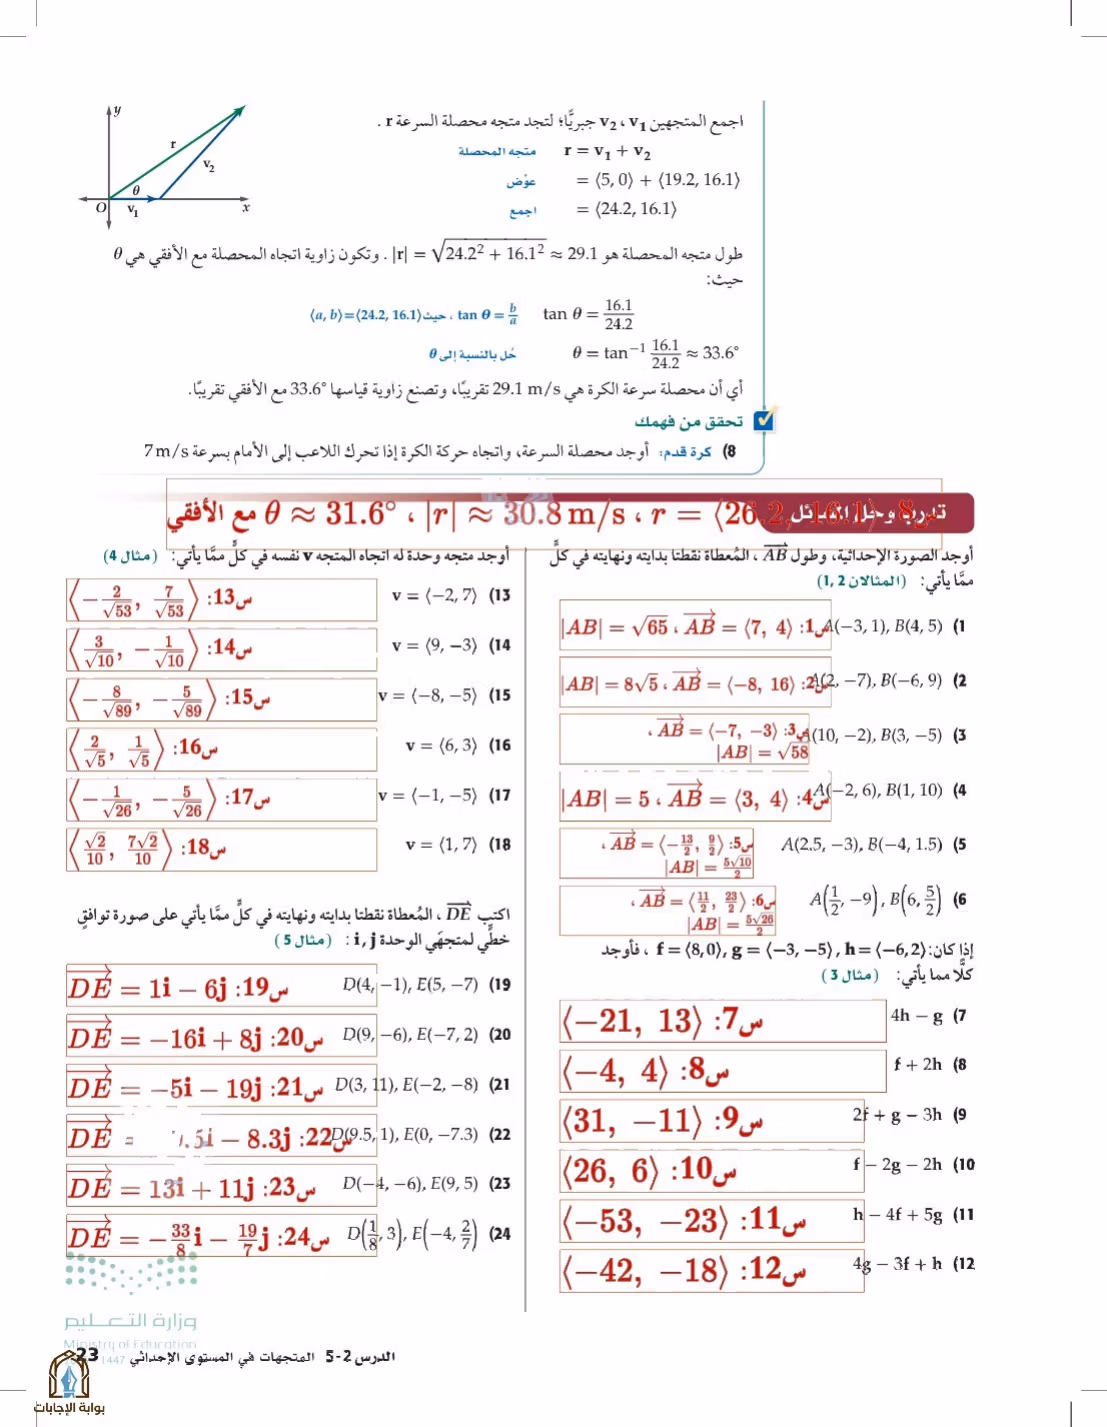 y
r
v₂
θ
O
v₁
x
اجمع المتجهين v₁ ، v₂ جبريًّا؛ لتجد متجه محصلة السرعة r .
متجه المحصلة r = v₁ + v₂
عوّض = ⟨5, 0⟩ + ⟨19.2, 16.1⟩
اجمع = ⟨24.2, 16.1⟩
طول متجه المحصلة هو |r| = √(24.2² + 16.1²) ≈ 29.1 . وتكون زاوية اتجاه المحصلة مع الأفقي هي θ
حيث:
tan θ = b/a ، حيث ⟨a, b⟩=⟨24.2, 16.1⟩ tan θ = 16.1/24.2
حُل بالنسبة إلى θ θ = tan⁻¹ 16.1/24.2 ≈ 33.6°
أي أن محصلة سرعة الكرة هي 29.1 m/s تقريبًا، وتصنع زاوية قياسها 33.6° مع الأفقي تقريبًا.
تحقق من فهمك
8) كرة قدم: أوجد محصلة السرعة، واتجاه حركة الكرة إذا تحرك اللاعب إلى الأمام بسرعة 7 m/s
تدرب وحل المسائل
س8: r = ⟨26.2, 16.1⟩ ، |r| ≈ 30.8 m/s ، θ ≈ 31.6° مع الأفقي
أوجد الصورة الإحداثية، وطول AB ، المُعطاة نقطتا بدايته ونهايته في كلٍّ
ممَّا يأتي: (المثالان 1, 2)
1) A(−3, 1), B(4, 5)
س1: AB = ⟨7, 4⟩ ، |AB| = √65
2) A(2, −7), B(−6, 9)
س2: AB = ⟨−8, 16⟩ ، |AB| = 8√5
3) A(10, −2), B(3, −5)
س3: AB = ⟨−7, −3⟩ ،
|AB| = √58
4) A(−2, 6), B(1, 10)
س4: AB = ⟨3, 4⟩ ، |AB| = 5
5) A(2.5, −3), B(−4, 1.5)
س5: AB = ⟨−13/2, 9/2⟩ ،
|AB| = 5√10/2
6) A(1/2, −9), B(6, 5/2)
س6: AB = ⟨11/2, 23/2⟩ ،
|AB| = 5√26/2
إذا كان: f = ⟨8, 0⟩, g = ⟨−3, −5⟩, h = ⟨−6, 2⟩ ، فأوجد
كلًّا مما يأتي: (مثال 3)
7) 4h − g
س7: ⟨−21, 13⟩
8) f + 2h
س8: ⟨−4, 4⟩
9) 2f + g − 3h
س9: ⟨31, −11⟩
10) f − 2g − 2h
س10: ⟨26, 6⟩
11) h − 4f + 5g
س11: ⟨−53, −23⟩
12) 4g − 3f + h
س12: ⟨−42, −18⟩
أوجد متجه وحدة له اتجاه المتجه v نفسه في كلٍّ ممَّا يأتي: (مثال 4)
13) v = ⟨−2, 7⟩
س13: ⟨−2/√53, 7/√53⟩
14) v = ⟨9, −3⟩
س14: ⟨3/√10, −1/√10⟩
15) v = ⟨−8, −5⟩
س15: ⟨−8/√89, −5/√89⟩
16) v = ⟨6, 3⟩
س16: ⟨2/√5, 1/√5⟩
17) v = ⟨−1, −5⟩
س17: ⟨−1/√26, −5/√26⟩
18) v = ⟨1, 7⟩
س18: ⟨√2/10, 7√2/10⟩
اكتب DE ، المُعطاة نقطتا بدايته ونهايته في كلٍّ ممَّا يأتي على صورة توافقٍ
خطِّي لمتجهَي الوحدة i, j : (مثال 5)
19) D(4, −1), E(5, −7)
س19: DE = 1i − 6j
20) D(9, −6), E(−7, 2)
س20: DE = −16i + 8j
21) D(3, 11), E(−2, −8)
س21: DE = −5i − 19j
22) D(9.5, 1), E(0, −7.3)
س22: DE = .5i − 8.3j
23) D(−4, −6), E(9, 5)
س23: DE = 13i + 11j
24) D(1/8, 3), E(−4, 2/7)
س24: DE = −33/8 i − 19/7 j
وزارة التعليم
Ministry of Education
1447
الدرس 2-5 المتجهات في المستوى الإحداثي 23
بوابة الإجابات